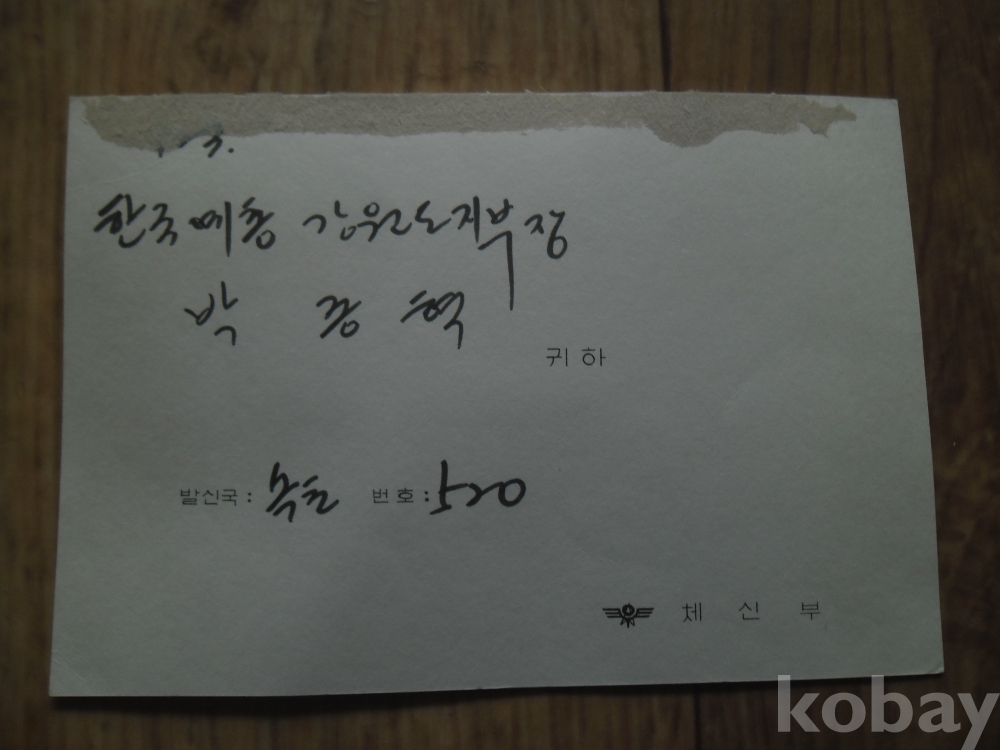 한국예총 강원도지부장
박 종 혁
귀 하
발신국 : 속초 번호 : 520
체 신 부
kobay